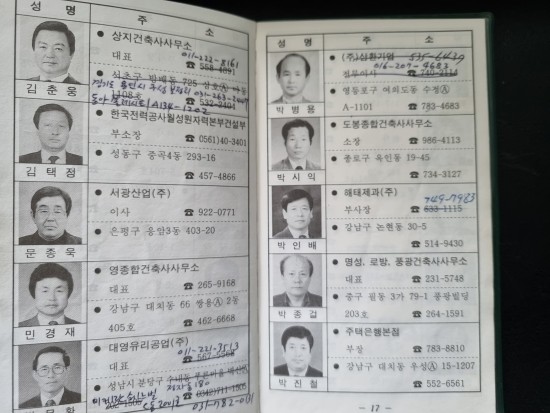 성 명 주 소
김 춘 웅
● 상지건축사사무소
011-222-8161
대표 ☎ 558-4891
● 서초구 방배동 705
031-263-2007
☎ 532-2401
김 택 정
● 한국전력공사월성원자력본부건설부
부소장 ☎ 0561)40-3401
● 성동구 중곡4동 293-16
☎ 457-4866
문 종 욱
● 서광산업(주)
이사 ☎ 922-0771
● 은평구 응암3동 403-20
민 경 재
● 영종합건축사사무소
대표 ☎ 265-9168
● 강남구 대치동 66 쌍용Ⓐ 2동
405호 ☎ 462-6668
● 대영유리공업(주)
011-221-3513
대표 ☎ 567-5568
● 성남시 분당구
☎ (0342)711-1505
031-782-0131
성 명 주 소
박 병 용
● (주)삼환기업 535-6439
016-207-4683
☎ 740-2114
● 영등포구 여의도동 수정Ⓐ
A-1101 ☎ 783-4683
박 시 익
● 도봉종합건축사사무소
소장 ☎ 986-4113
● 종로구 옥인동 19-45
☎ 734-3127
박 인 배
● 해태제과(주)
749-7923
부사장 ☎ 633-1115
● 강남구 논현동 30-5
☎ 514-9430
박 종 걸
● 명성, 로방, 풍광건축사사무소
대표 ☎ 231-5748
● 중구 필동 3가 79-1 풍광빌딩
203호 ☎ 264-1591
박 진 철
● 주택은행본점
부장 ☎ 783-8810
● 강남구 대치동 우성Ⓐ 15-1207
☎ 552-6561
- 17 -